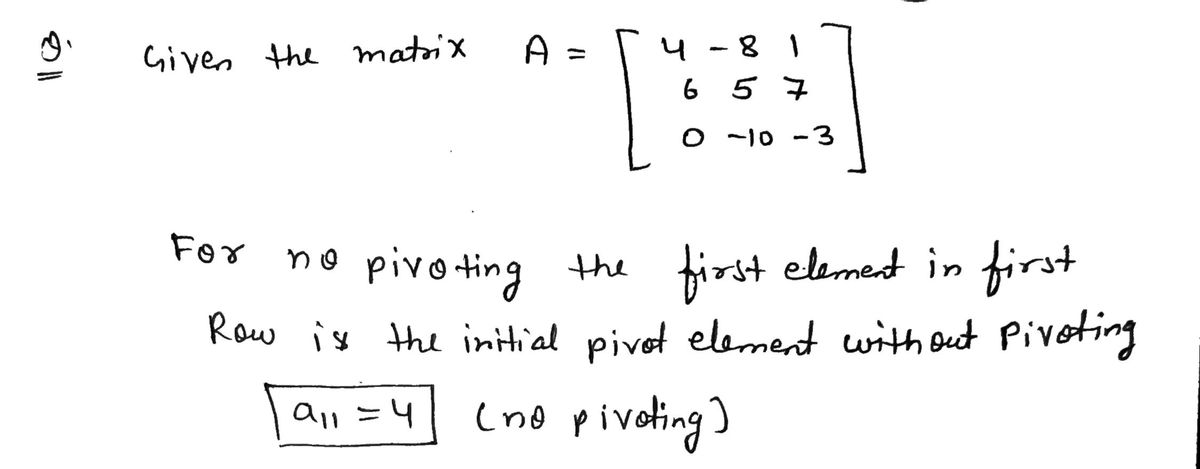 Q. Given the matrix A = [ 4 -8 1
6 5 7
0 -10 -3 ]
For no pivoting the first element in first
Row is the initial pivot element without Pivoting
a11 = 4 (no pivoting)